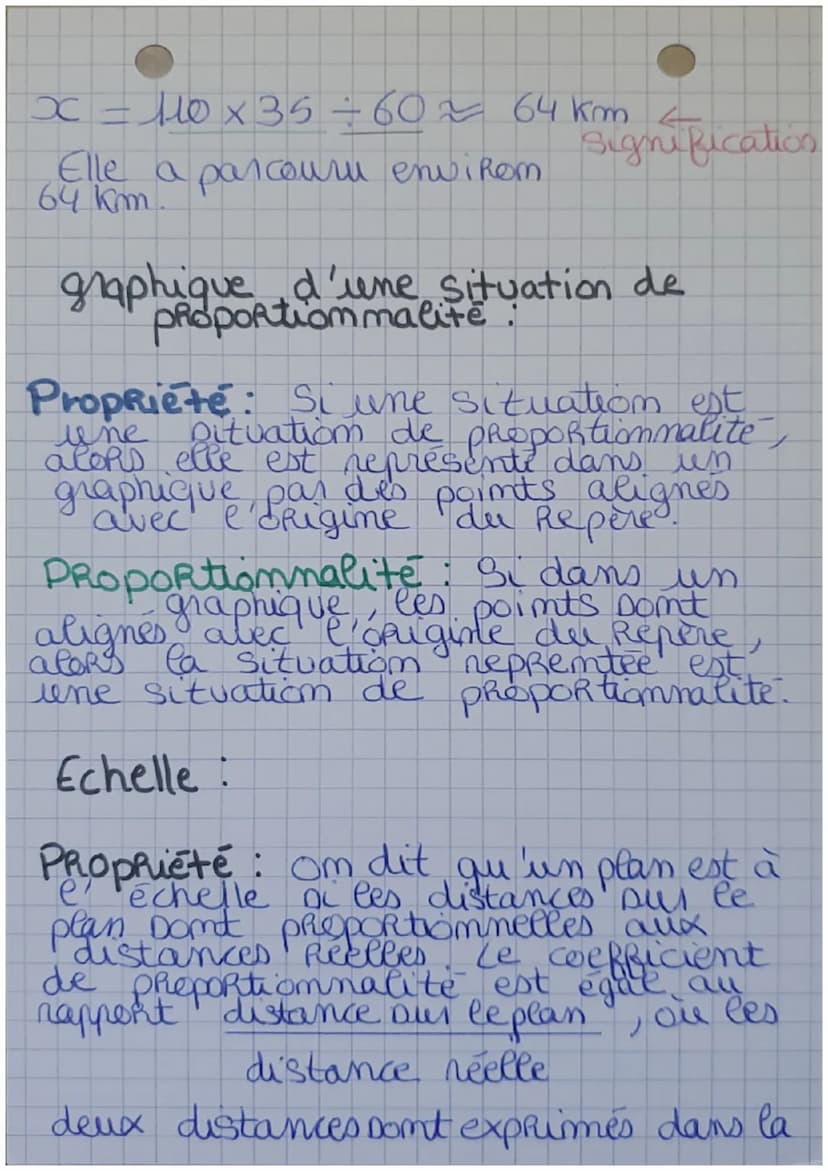 x = 110 × 35 ÷ 60 ≈ 64 km ←
signification
Elle a parcouru environ
64 km.
graphique d'une situation de
proportionnalité :
Propriété : Si une situation est
une situation de proportionnalité,
alors elle est représenté dans un
graphique par des points alignés
avec l'origine du Repère.
Proportionnalité : Si dans un
graphique, les points sont
alignés avec l'origine du Repère,
alors la situation repremtée est
une situation de proportionnalité.
Echelle :
Propriété : on dit qu'un plan est à
l'échelle si les distances sur le
plan sont proportionnelles aux
distances réelles. Le coefficient
de proportionnalité est égale au
rapport distance sur le plan , où les
distance réelle
deux distances sont exprimés dans la